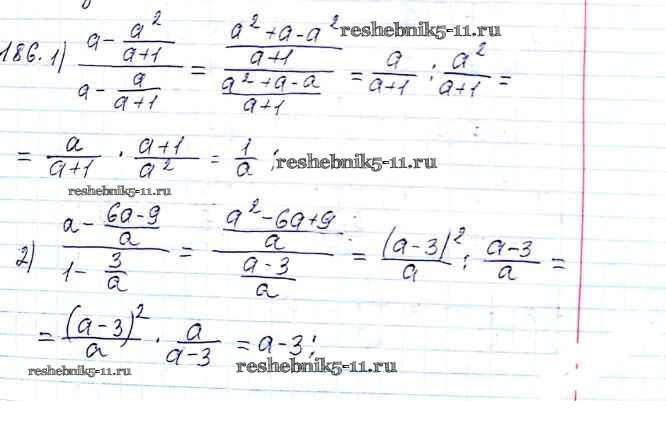 186. 1) (a - a²/(a+1)) / (a - a/(a+1)) = ((a²+a-a²)/(a+1)) / ((a²+a-a)/(a+1)) = a/(a+1) : a²/(a+1) =
reshebnik5-11.ru
= a/(a+1) · (a+1)/a² = 1/a;
reshebnik5-11.ru
reshebnik5-11.ru
2) (a - (6a-9)/a) / (1 - 3/a) = ((a²-6a+9)/a) / ((a-3)/a) = (a-3)²/a : (a-3)/a =
= (a-3)²/a · a/(a-3) = a-3;
reshebnik5-11.ru
reshebnik5-11.ru